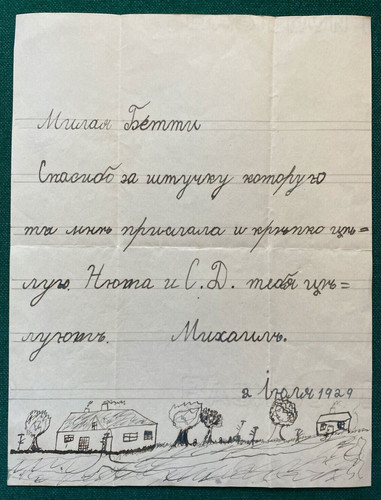 Милая Бетти
Спасибо за штучку которую
ты мнѣ прислала и крѣпко цѣ=
лую. Нюта и С. Д. тебя цѣ=
луютъ. Михаилъ.
2 Іюля 1929